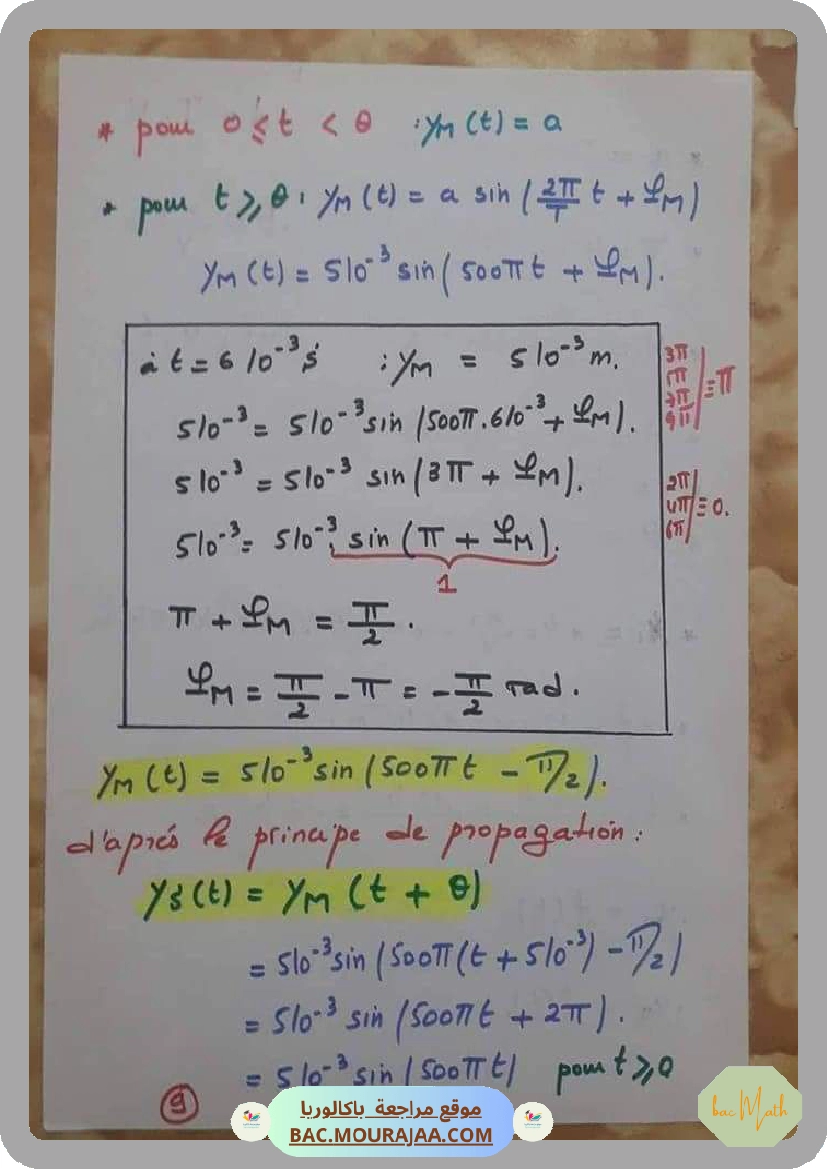 * pour 0 ≤ t < θ : yM(t) = a
* pour t ≥ θ : yM(t) = a sin(2π/T t + φM)
yM(t) = 5 10⁻³ sin(500πt + φM).
à t = 6 10⁻³ s : yM = 5 10⁻³ m.
5 10⁻³ = 5 10⁻³ sin(500π.6 10⁻³ + φM).
5 10⁻³ = 5 10⁻³ sin(3π + φM).
5 10⁻³ = 5 10⁻³ sin(π + φM).
1
π + φM = π/2.
φM = π/2 - π = -π/2 rad.
3π
≡ π
9π
2π
4π ≡ 0.
6π
yM(t) = 5 10⁻³ sin(500πt - π/2).
d'après le principe de propagation :
yS(t) = yM(t + θ)
= 5 10⁻³ sin(500π(t + 5 10⁻³) - π/2)
= 5 10⁻³ sin(500πt + 2π).
= 5 10⁻³ sin(500πt) pour t ≥ 0
9
موقع مراجعة باكالوريا
BAC.MOURAJAA.COM
bac Math